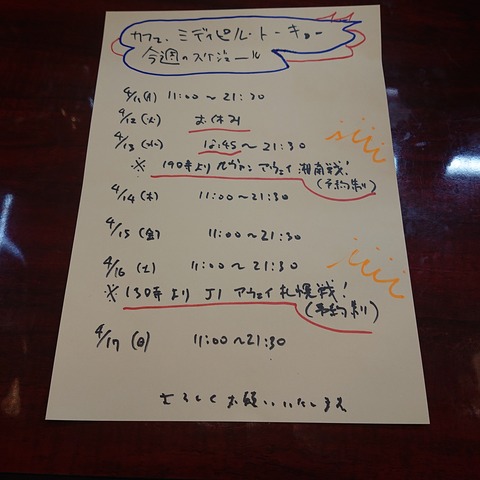 カフェ、ミディピル・トーキョー
今週のスケジュール
4/11(月) 11:00～21:30
4/12(火) お休み
4/13(水) 12:45～21:30
※ 19時よりルヴァンアウェイ湘南戦!
(予約制)
4/14(木) 11:00～21:30
4/15(金) 11:00～21:30
4/16(土) 11:00～21:30
※ 13時より J1 アウェイ札幌戦!
(予約制)
4/17(日) 11:00～21:30
よろしくお願いいたします